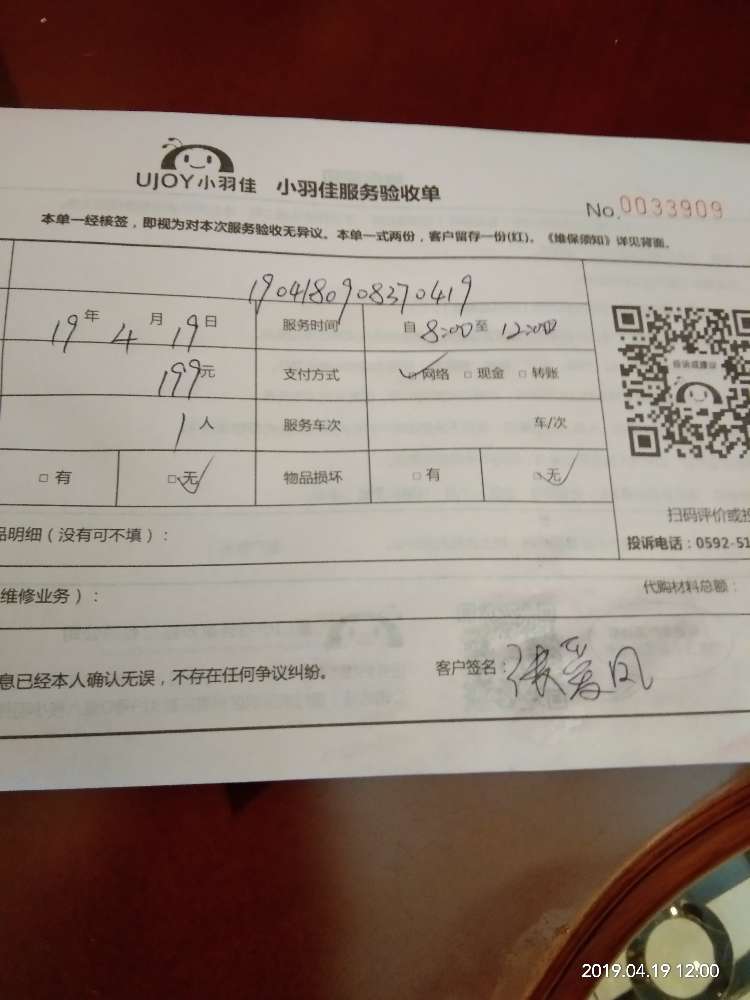 UJOY小羽佳 小羽佳服务验收单
No.0033909
本单一经核签，即视为对本次服务验收无异议。本单一式两份，客户留存一份(红)。《维保须知》详见背面。
1904180908370419
19年4月19日 服务时间 自8:00至12:00
199元 支付方式 ☑网络 □现金 □转账
1人 服务车次 车/次
□有 ☑无 物品损坏 □有 ☑无
投诉或建议
扫码评价或投
品明细（没有可不填）：
投诉电话：0592-51
维修业务）：
代购材料总额：
息已经本人确认无误，不存在任何争议纠纷。 客户签名：张爱凤
2019.04.19 12:00